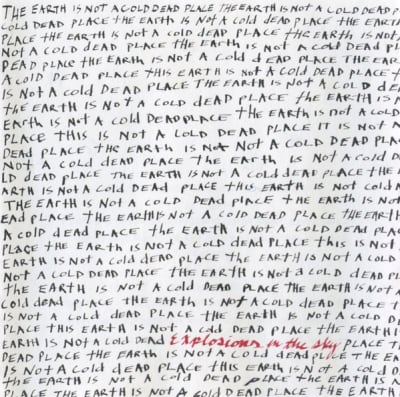 THE EARTH IS NOT A COLD DEAD PLACE THE EARTH IS NOT A COLD DEAD P
COLD DEAD PLACE THE EARTH IS NOT A COLD DEAD PLACE THE EARTH
PLACE THE EARTH IS NOT A COLD DEAD PLACE THE EARTH IS NOT
NOT A COLD DEAD PLACE THE EARTH IS NOT A COLD DEAD PL
DEAD PLACE THE EARTH IS NOT A COLD DEAD PLACE THE EAR
A COLD DEAD PLACE THIS EARTH IS NOT A COLD DEAD PLACE T
IS NOT A COLD DEAD PLACE THE EARTH IS NOT A COLD DE
THE EARTH IS NOT A COLD DEAD PLACE THE EARTH IS N
EARTH IS NOT A COLD DEAD PLACE THE EARTH IS NOT A COLD
PLACE THIS IS NOT A COLD DEAD PLACE IT IS NOT A
DEAD PLACE THE EARTH IS NOT A COLD DEAD PLAC
NOT A COLD DEAD PLACE THE EARTH IS NOT A COLD D
LD DEAD PLACE THE EARTH IS NOT A COLD DEAD PLACE THE
ARTH IS NOT A COLD DEAD PLACE THIS EARTH IS NOT COLD A
THE EARTH IS NOT A COLD DEAD PLACE THE EARTH IS NOT
EAD PLACE THE EARTH IS NOT A COLD DEAD PLACE THE EARTH
A COLD DEAD PLACE THE EARTH IS NOT A COLD DEAD PLAC
PLACE THE EARTH IS NOT A COLD DEAD PLACE THIS IS NOT
EARTH IS NOT A COLD DEAD PLACE THE EARTH IS NOT A COLD
NOT A COLD DEAD PLACE THE EARTH IS NOT A COLD DEAD PL
THE EARTH IS NOT A COLD DEAD PLACE THE EARTH IS NOT
COLD DEAD PLACE THE EARTH IS NOT A COLD DEAD PLACE T
IS NOT A COLD DEAD PLACE THE EARTH IS NOT A COLD D
PLACE THIS EARTH IS NOT A COLD DEAD PLACE THE EARTH I
EARTH IS NOT A COLD DEAD Explosions in the sky PLACE T
DEAD PLACE THE EARTH IS NOT A COLD DEAD PLACE THE EA
IS NOT A COLD DEAD PLACE THIS EARTH IS NOT A COLD D
THE EARTH IS NOT A COLD DEAD PLACE THE EARTH IS NO
PLACE THE EARTH IS NOT A COLD DEAD PLACE THE EARTH IS